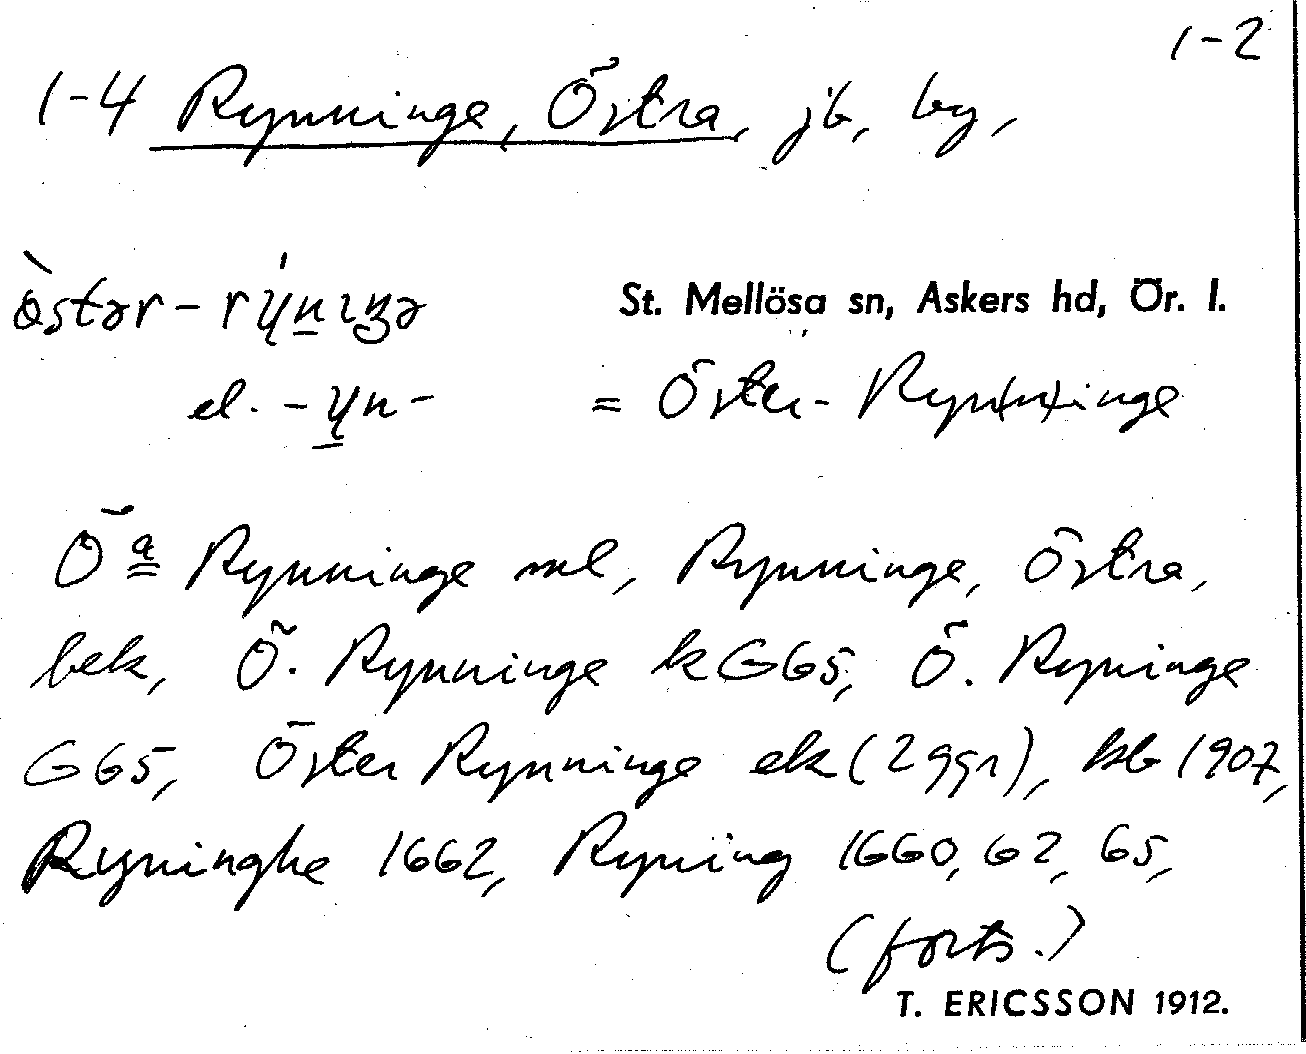 1-2
1-4 Rynninge, Östra, jb, by,
St. Mellösa sn, Askers hd, Ör. l.
el. -yn- = Öster-Ryn(n)inge
Ö a Rynninge ml, Rynninge, Östra,
bek, Ö. Rynninge k G65, Ö. Ryninge
G65, Öster Rynninge ek (2 ggr), kb 1907,
Ryninghe 1662, Ryning 1660, 62, 65,
(forts.)
T. ERICSSON 1912.